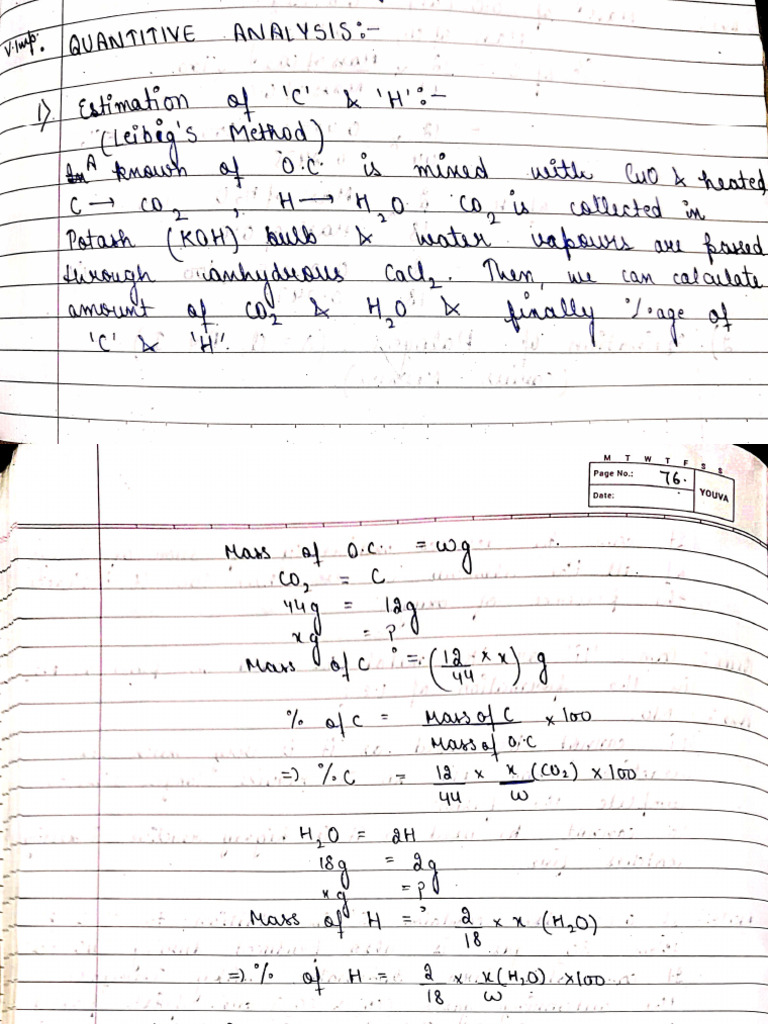 V.imp. QUANTITIVE ANALYSIS:-
1) Estimation of 'C' & 'H':-
(Leibig's Method)
A known of O.C. is mixed with CuO & heated,
C → CO2 , H → H2O. CO2 is collected in
Potash (KOH) bulb & water vapours are passed
through anhydrous CaCl2. Then, we can calculate
amount of CO2 & H2O & finally %age of
'C' & 'H'.
M T W T F S S
Page No.: 76.
Date:
YOUVA
Mass of O.C. = wg
CO2 = C
44g = 12g
xg = ?
Mass of C = (12/44 × x) g
% of C = Mass of C / Mass of O.C × 100
=> % C = 12/44 × x/w (CO2) × 100
H2O = 2H
18g = 2g
xg = ?
Mass of H = 2/18 × x (H2O)
=> % of H = 2/18 × x(H2O)/w × 100